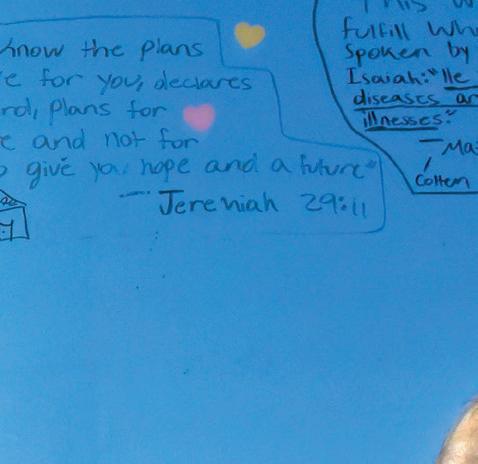 know the plans
e for you, declares
rd, plans for
e and not for
give you hope and a future"
— Jeremiah 29:11
This w
fulfill wh
Spoken by
Isaiah: "He
diseases an
illnesses."
— Ma